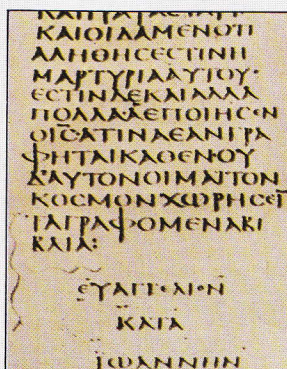 ΚΑΙΟΙΔΑΜΕΝΟΤΙ
ΑΛΗΘΗϹΕϹΤΙΝΗ
ΜΑΡΤΥΡΙΑΑΥΤΟΥ·
ΕϹΤΙΝΔΕΚΑΙΑΛΛΑ
ΠΟΛΛΑΑΕΠΟΙΗϹΕΝ
ΟΙ̅ϹΑΤΙΝΑΕΑΝΓΡΑ
ΦΗΤΑΙΚΑΘΕΝΟΥ
Δ'ΑΥΤΟΝΟΙΜΑΙΤΟΝ
ΚΟϹΜΟΝΧΩΡΗϹΕΙ̅
ΤΑΓΡΑΦΟΜΕΝΑΒΙ
ΒΛΙΑ:
ΕΥΑΓΓΕΛΙΟΝ
ΚΑΤΑ
ΙΩΑΝΝΗΝ